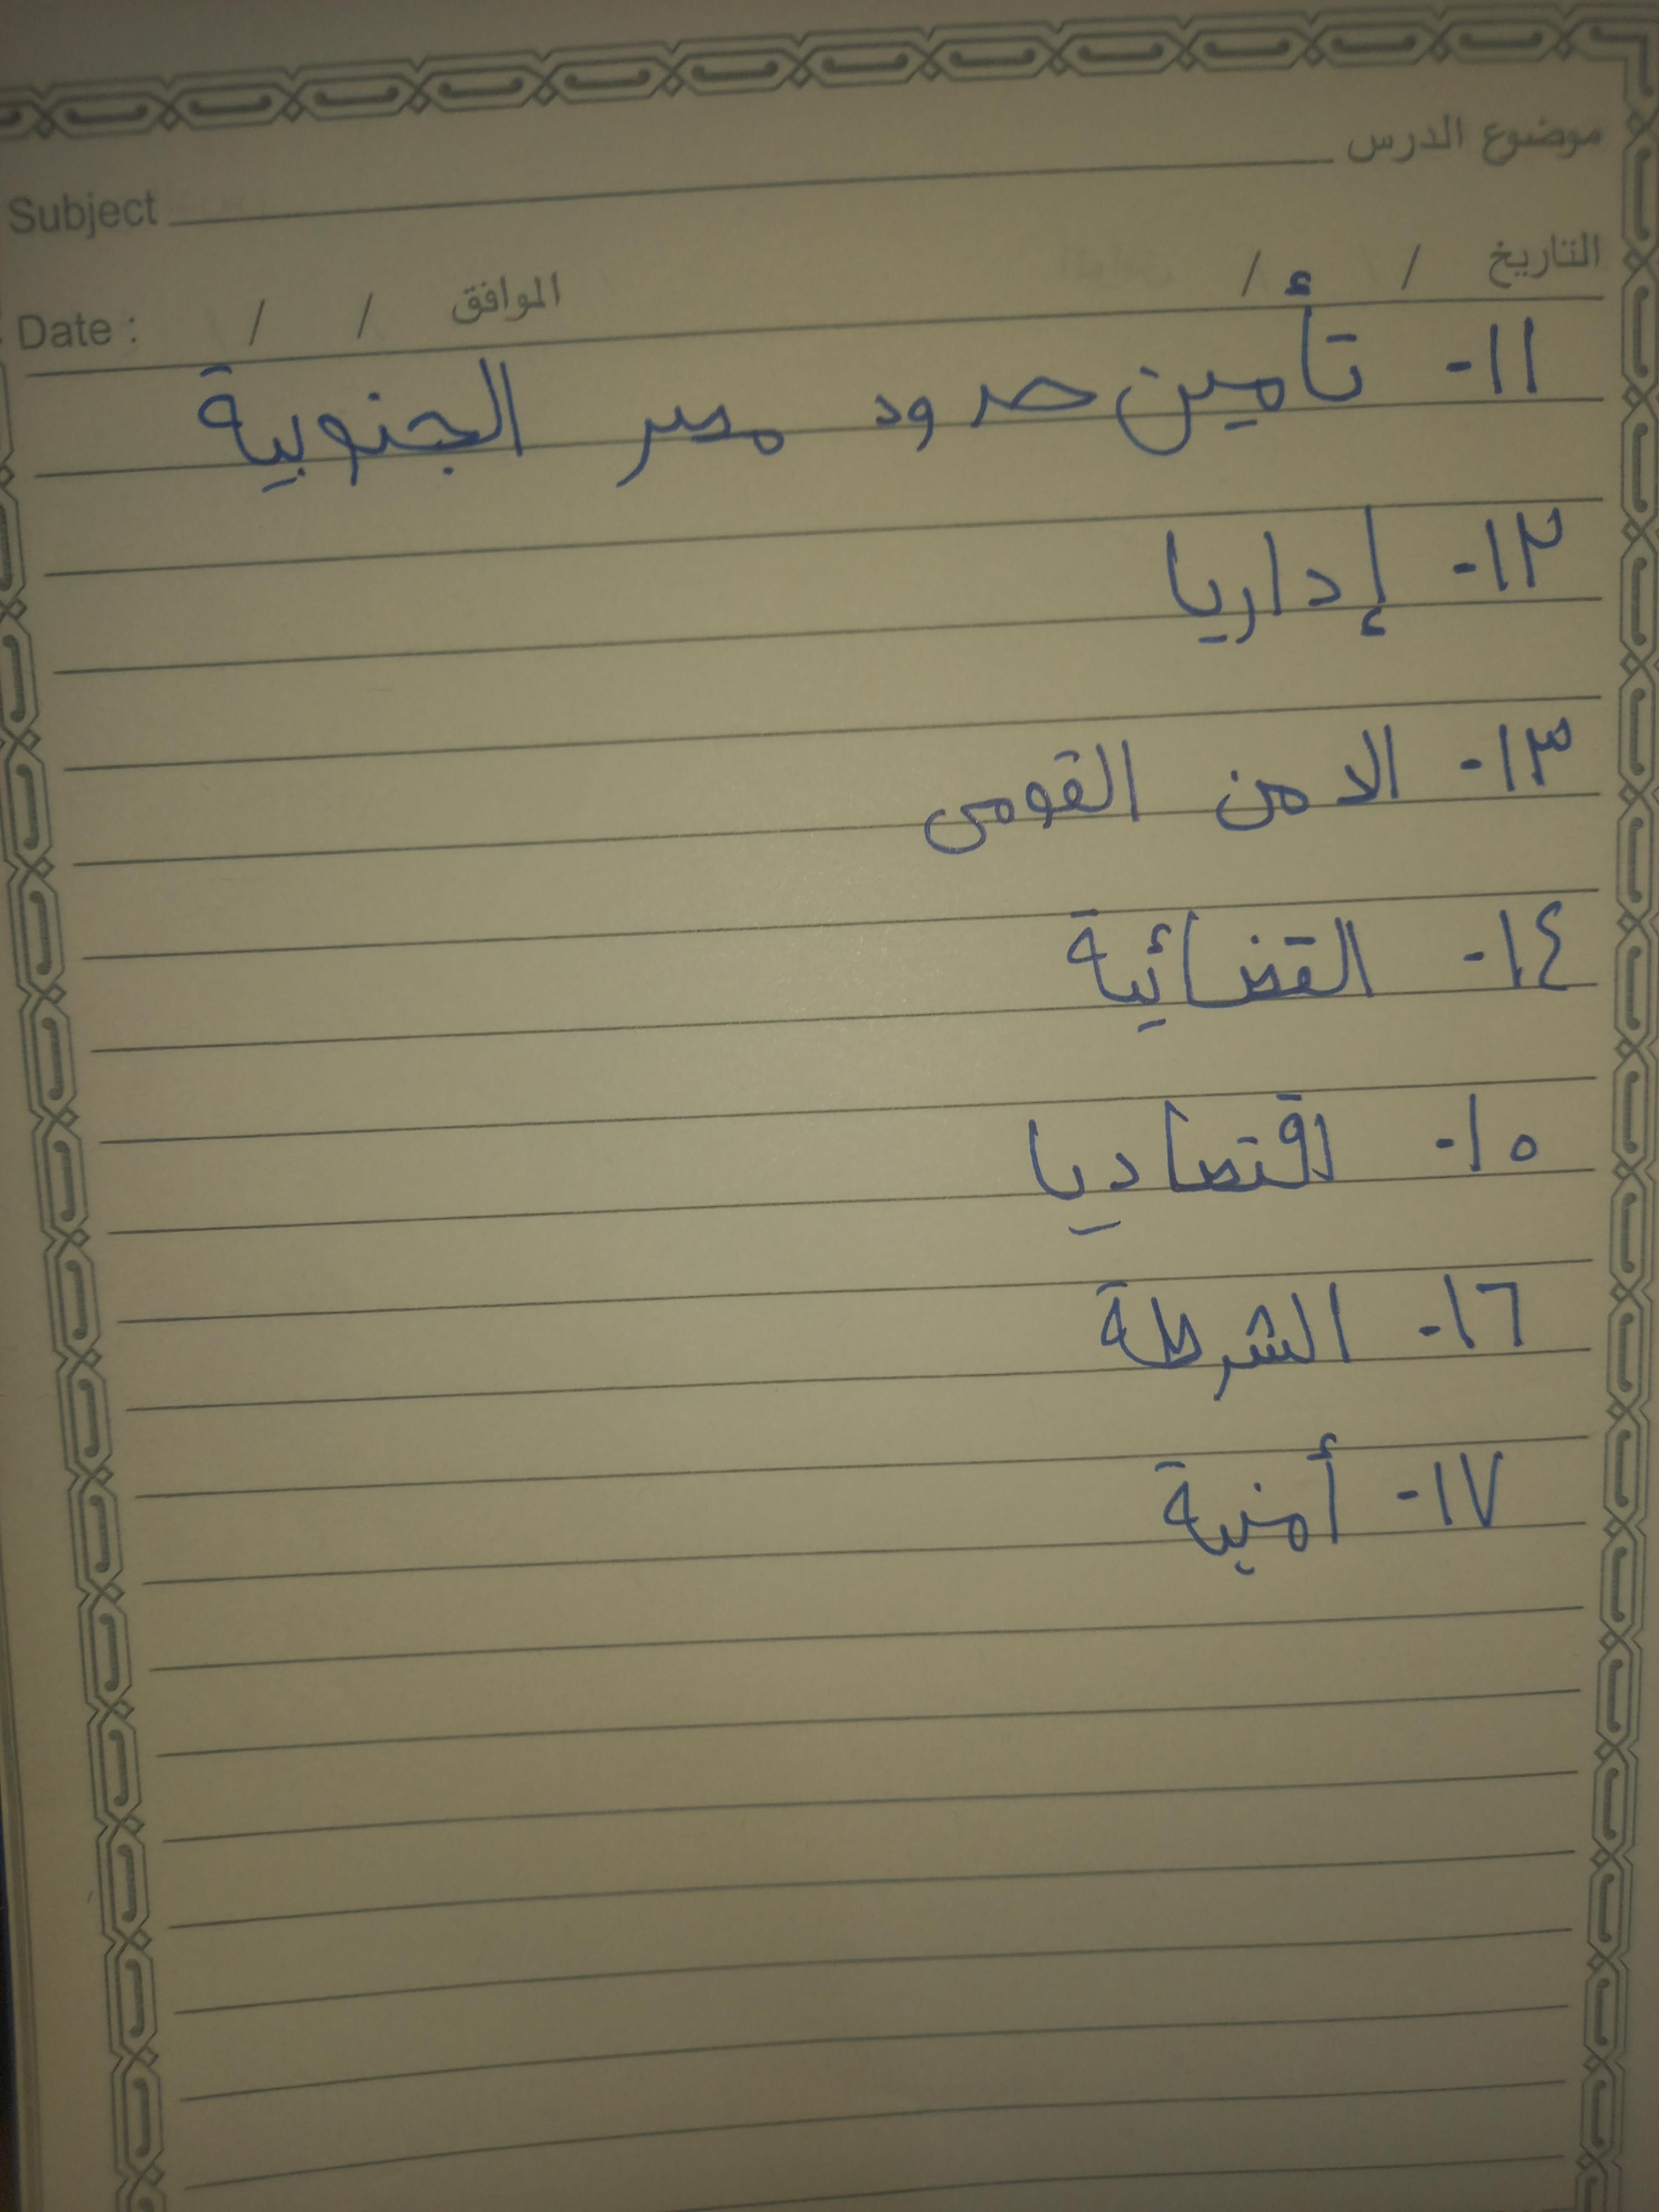 موضوع الدرس
Subject
التاريخ / / الموافق / / Date :
١١- تأمين حدود مصر الجنوبية
١٢- إداريا
١٣- الامن القومى
١٤- القضائية
١٥- اقتصاديا
١٦- الشرطة
١٧- أمنية